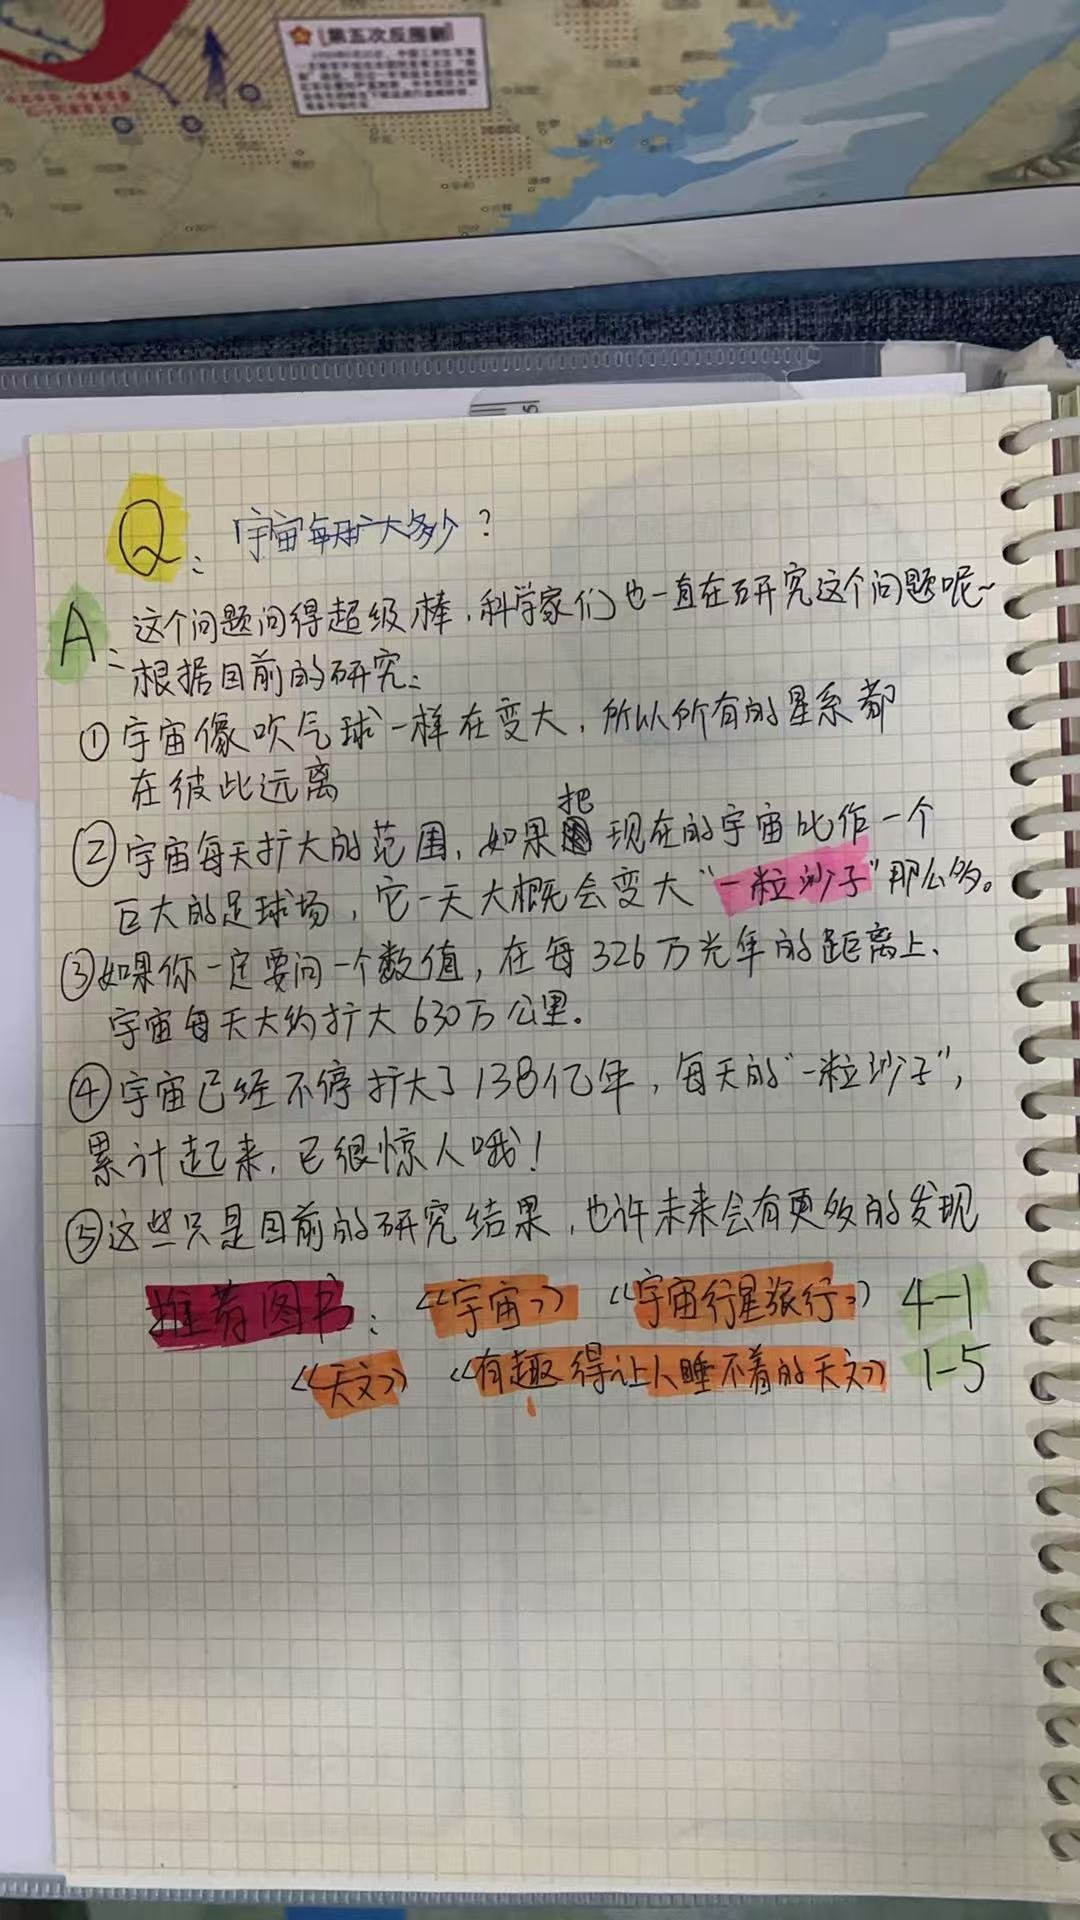 第五次反围剿
Q: 宇宙每天扩大多少?
A: 这个问题问得超级棒,科学家们也一直在研究这个问题呢~
根据目前的研究:
①宇宙像吹气球一样在变大,所以所有的星系都
在彼此远离
②宇宙每天扩大的范围,如果把现在的宇宙比作一个
巨大的足球场,它一天大概会变大“一粒沙子”那么多。
③如果你一定要问一个数值,在每326万光年的距离上、
宇宙每天大约扩大630万公里。
④宇宙已经不停扩大了138亿年,每天的“一粒沙子”,
累计起来,已很惊人哦!
⑤这些只是目前的研究结果,也许未来会有更多的发现
推荐图书:《宇宙》 《宇宙行星旅行》 4-1
《天文》 《有趣得让人睡不着的天文》 1-5